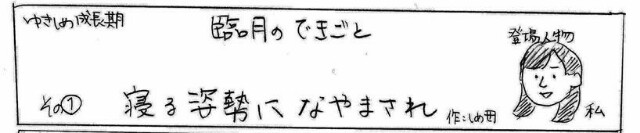 ゆきしめ成長期
臨月のできごと
登場人物
その① 寝る姿勢になやまされ
作:しめ母
私